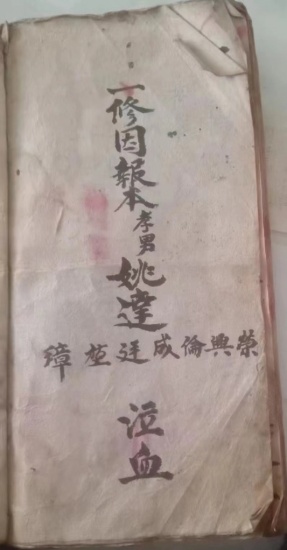 一修因報本孝男姚達
榮興倫成璋
泣血